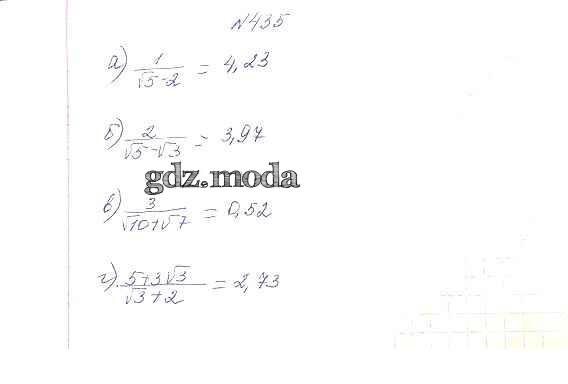 №435
а) 1/(√5-2) = 4,23
б) 2/(√5-√3) = 3,97
gdz.moda
в) 3/(√10+√7) = 0,52
г) (5+3√3)/(√3+2) = 2,73